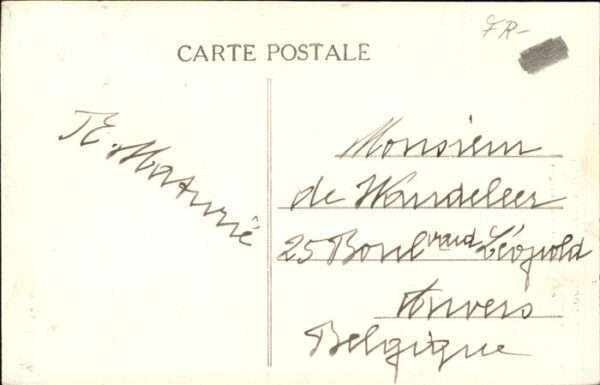 FR-
CARTE POSTALE
Monsieur
de Wandeleer
25 Boulvard Léopold
Anvers
Belgique